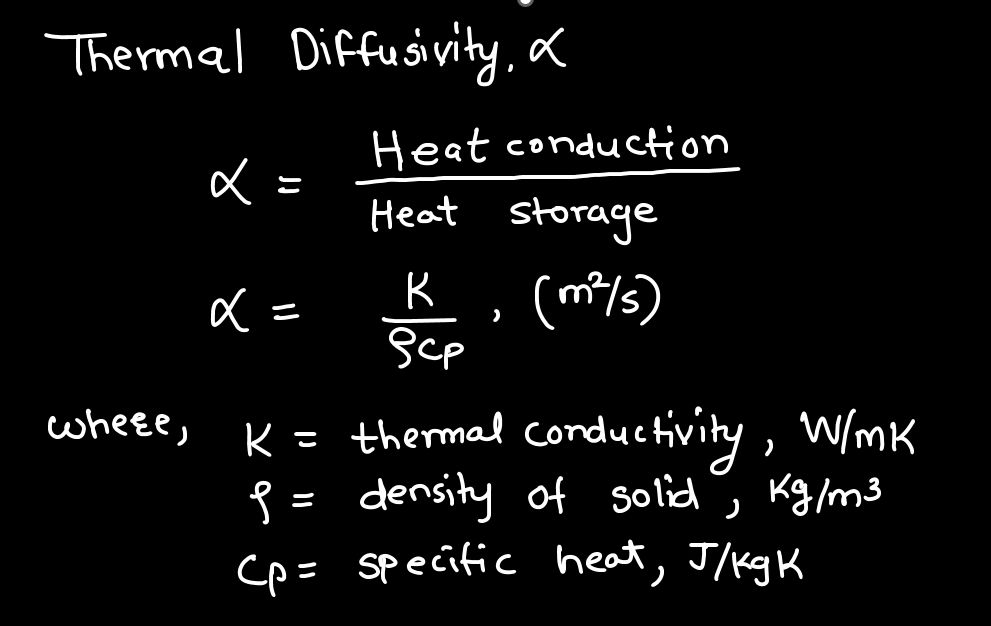 Thermal Diffusivity, α
α = Heat conduction / Heat storage
α = K / ρCp , (m²/s)
where, K = thermal conductivity, W/mK
ρ = density of solid, Kg/m³
Cp = specific heat, J/kgK